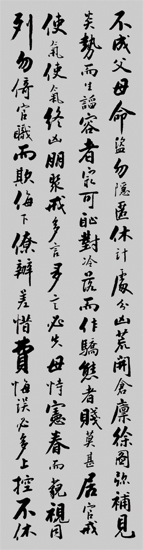 不成父母命盜勿隱匿休計處分凶荒開倉廩徐圖弥補見
炎勢而生諂容者家可恥對冷落而作驕態者賤莫甚居官戒
使氣使氣終凶朋聚戒多言多言必失毋恃憲眷而藐視同
列勿倚官職而欺侮下僚辦差惜費悔誤必多上控不休